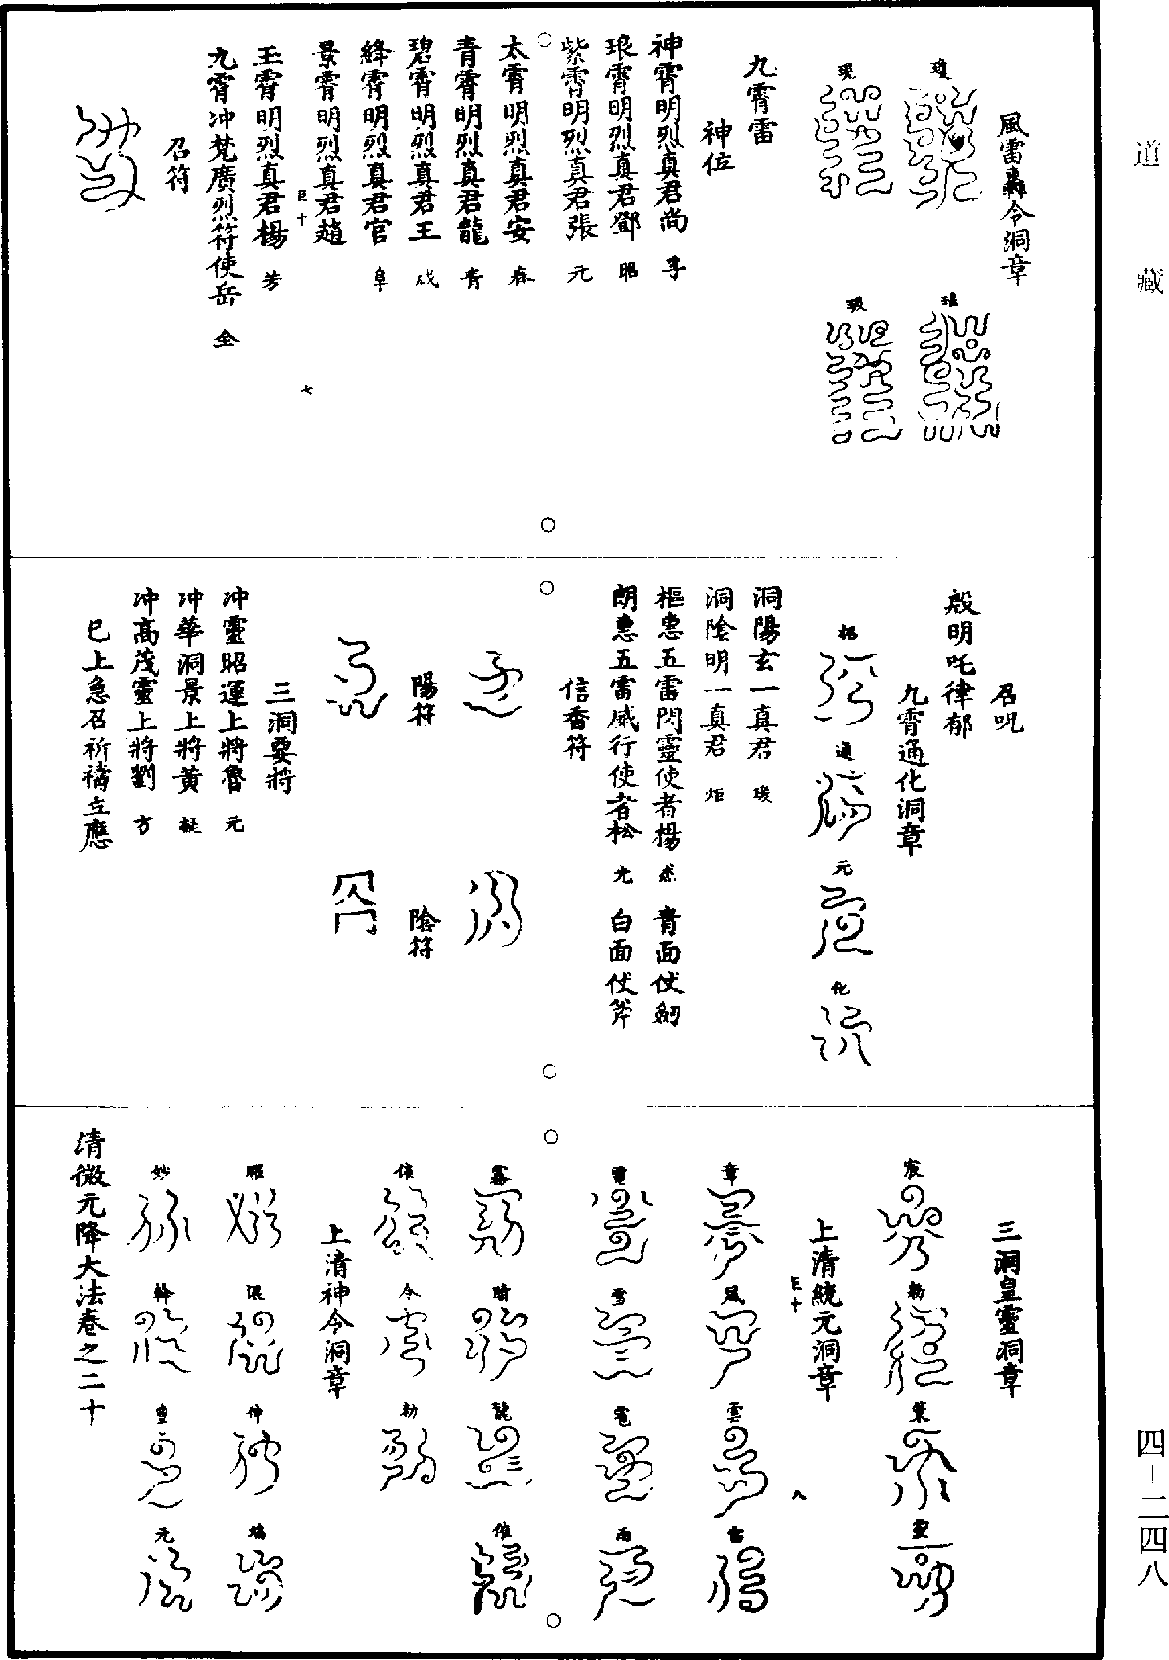 道藏
風雷轟令洞章
九霄雷
神位
神霄明烈真君尚
琅霄明烈真君鄧 昭
紫霄明烈真君張 元
太霄明烈真君安 森
青霄明烈真君龍 青
碧霄明烈真君王 成
絳霄明烈真君官 阜
景霄明烈真君趙
玉霄明烈真君楊 芳
九霄冲梵廣烈符使岳 全
召符
七
召呪
殷明吒律郁
九霄通化洞章
招
通
元
化
洞陽玄一真君
洞陰明一真君 炬
樞惠五雷閃靈使者楊 青面仗劒
朗惠五雷威行使者松 光 白面仗斧
信香符
陽符
陰符
三洞要將
冲靈昭運上將魯 元
冲華洞景上將黃
冲高茂靈上將劉 方
巳上急召祈禱立應
三洞皇靈洞章
宸
勑
策
靈
上清統元洞章
八
章
風
雲
雷
電
雪
雹
雨
霧
晴
龍
催
候
令
勑
上清神令洞章
昭
混
仲
妙
幹
皇
元
清微元降大法卷之二十
四－二四八